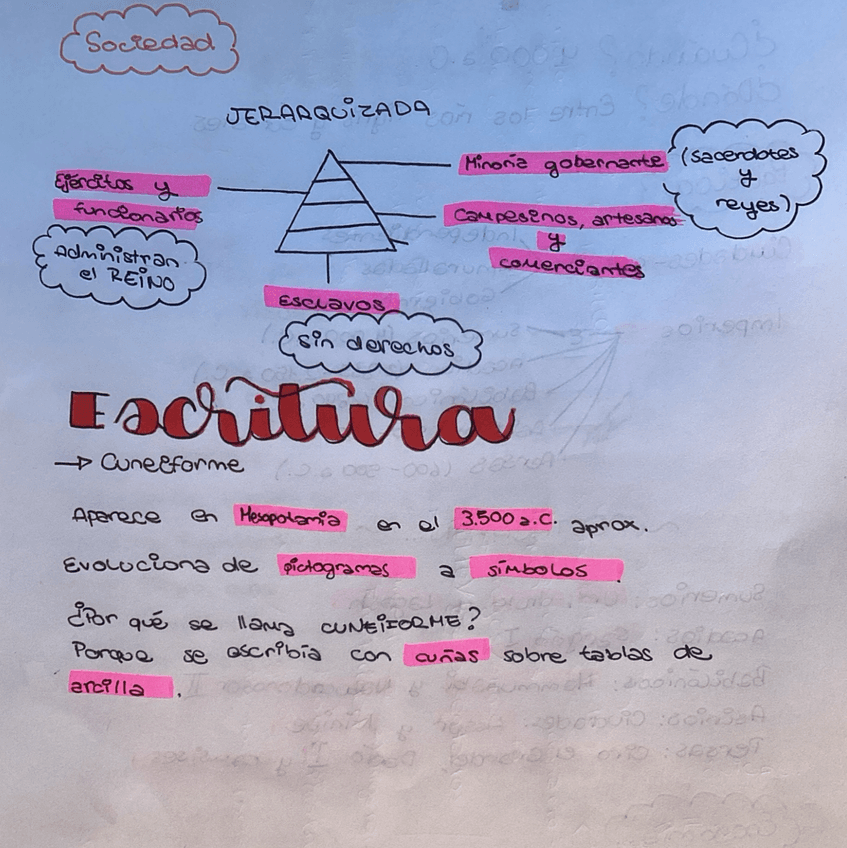 Sociedad
JERARQUIZADA
Minoría gobernante
(sacerdotes
y
reyes)
Ejércitos y
funcionarios
Administran
el REINO
Campesinos, artesanos
y
comerciantes
Esclavos
sin derechos
Escritura
→ Cuneiforme
Aparece en Mesopotamia en el 3.500 a.C. aprox.
Evoluciona de pictogramas a símbolos.
¿Por qué se llama CUNEIFORME?
Porque se escribía con cuñas sobre tablas de
arcilla.